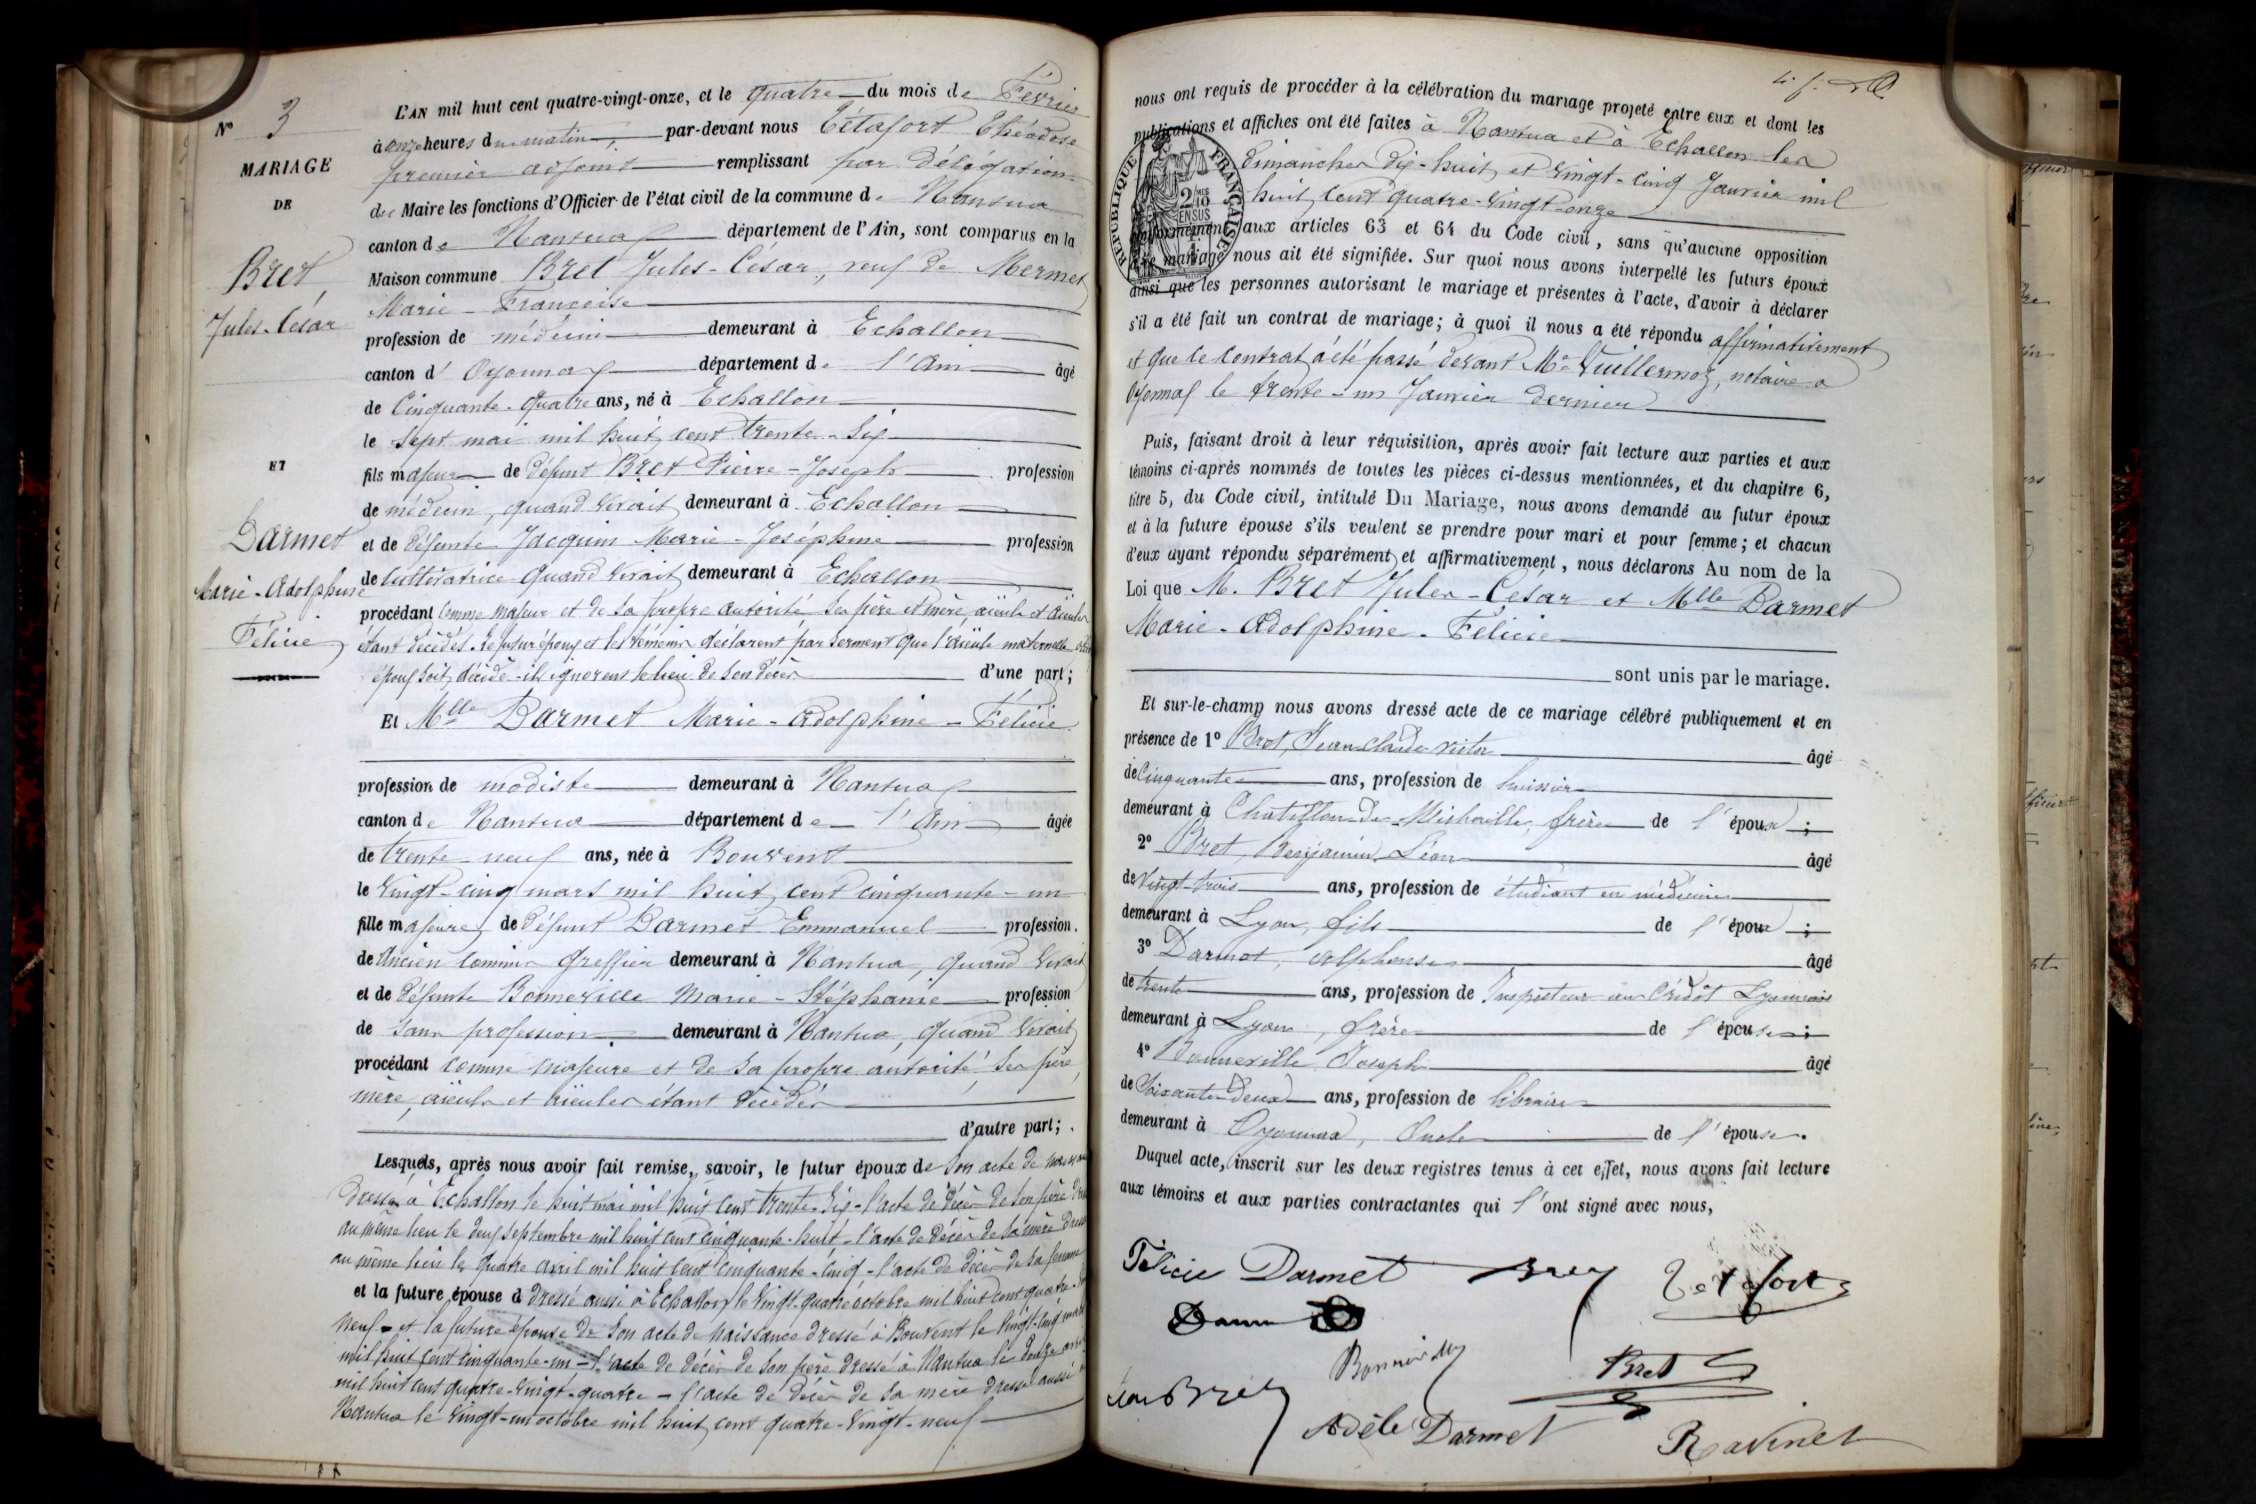 N° 3
MARIAGE
DE
Bret
Jules-César
ET
Darmet
Marie-Adolphine
Félicie
L'AN mil huit cent quatre-vingt-onze, et le quatre du mois de Février
à onze heures du matin, par-devant nous Tétafort Théodose
premier adjoint remplissant par délégation
du Maire les fonctions d'Officier de l'état civil de la commune de Nantua
canton de Nantua département de l'Ain, sont comparus en la
Maison commune Bret Jules-César, veuf de Mermet
Marie-Françoise
profession de médecin demeurant à Echallon
canton d'Oyonnax département de l'Ain âgé
de Cinquante-quatre ans, né à Echallon
le sept mai mil huit cent trente-six
fils majeur de défunt Bret Pierre-Joseph profession
de médecin, quand vivait demeurant à Echallon
et de défunte Jacquin Marie-Joséphine profession
de cultivatrice quand vivait demeurant à Echallon
procédant comme majeur et de sa propre autorité ses père et mère, aïeuls et aïeules
étant décédés. Le futur époux et les témoins déclarent par serment que l'aïeule maternelle
époux soit décédé - ils ignorent le lieu de son décès d'une part;
Et Mlle Darmet Marie-Adolphine-Félicie
profession de modiste demeurant à Nantua
canton de Nantua département de l'Ain âgée
de trente-neuf ans, née à Bouvent
le vingt-cinq mars mil huit cent cinquante-un
fille majeure de défunt Darmet Emmanuel profession
de Ancien commis greffier demeurant à Nantua, quand vivait
et de défunte Bonneville Marie-Stéphanie profession
de sans profession demeurant à Nantua, quand vivait
procédant comme majeure et de sa propre autorité ses père,
mère, aïeuls et aïeules étant décédés
d'autre part;
Lesquels, après nous avoir fait remise, savoir, le futur époux de son acte de naissance
dressé à Echallon le huit mai mil huit cent trente-six - l'acte de décès de son père
au même lieu le deux septembre mil huit cent cinquante-huit - l'acte de décès de sa mère dressé
au même lieu le quatre avril mil huit cent cinquante-cinq - l'acte de décès de sa femme
et la future épouse d dressé aussi à Echallon le vingt-quatre octobre mil huit cent quatre-
neuf - et la future épouse de son acte de naissance dressé à Bouvent le vingt-cinq mars
mil huit cent cinquante-un - l'acte de décès de son père dressé à Nantua le douze
mil huit cent quatre-vingt-quatre - l'acte de décès de sa mère dressé aussi à
Nantua le vingt-un octobre mil huit cent quatre-vingt-neuf
nous ont requis de procéder à la célébration du mariage projeté entre eux et dont les
publications et affiches ont été faites à Nantua et à Echallon les
Dimanches dix-huit et vingt-cinq Janvier mil
huit cent quatre-vingt-onze
conformément aux articles 63 et 64 du Code civil, sans qu'aucune opposition
mariage nous ait été signifiée. Sur quoi nous avons interpellé les futurs époux
ainsi que les personnes autorisant le mariage et présentes à l'acte, d'avoir à déclarer
s'il a été fait un contrat de mariage; à quoi il nous a été répondu affirmativement
et que ce contrat a été passé devant Me Vuillermoz, notaire à
Oyonnax le trente-un Janvier dernier
RÉPUBLIQUE FRANÇAISE
Puis, faisant droit à leur réquisition, après avoir fait lecture aux parties et aux
témoins ci-après nommés de toutes les pièces ci-dessus mentionnées, et du chapitre 6,
titre 5, du Code civil, intitulé Du Mariage, nous avons demandé au futur époux
et à la future épouse s'ils veulent se prendre pour mari et pour femme; et chacun
d'eux ayant répondu séparément et affirmativement, nous déclarons Au nom de la
Loi que M. Bret Jules-César et Mlle Darmet
Marie-Adolphine-Félicie
sont unis par le mariage.
Et sur-le-champ nous avons dressé acte de ce mariage célébré publiquement et en
présence de 1° Bret, Jean Claude Victor âgé
de Cinquante ans, profession de huissier
demeurant à Châtillon de Michaille, frère de l'époux;
2° Bret, Benjamin Léon âgé
de vingt-trois ans, profession de étudiant en médecine
demeurant à Lyon, fils de l'époux;
3° Darmet, Alphonse âgé
de trente ans, profession de Inspecteur au Crédit Lyonnais
demeurant à Lyon, frère de l'épouse;
4° Bonneville Joseph âgé
de soixante-deux ans, profession de libraire
demeurant à Oyonnax, Oncle de l'épouse.
Duquel acte, inscrit sur les deux registres tenus à cet effet, nous avons fait lecture
aux témoins et aux parties contractantes qui l'ont signé avec nous,
Félicie Darmet Bret Tétafort
Bonneville
Bret
Léon Bret
Adèle Darmet
Ravinet